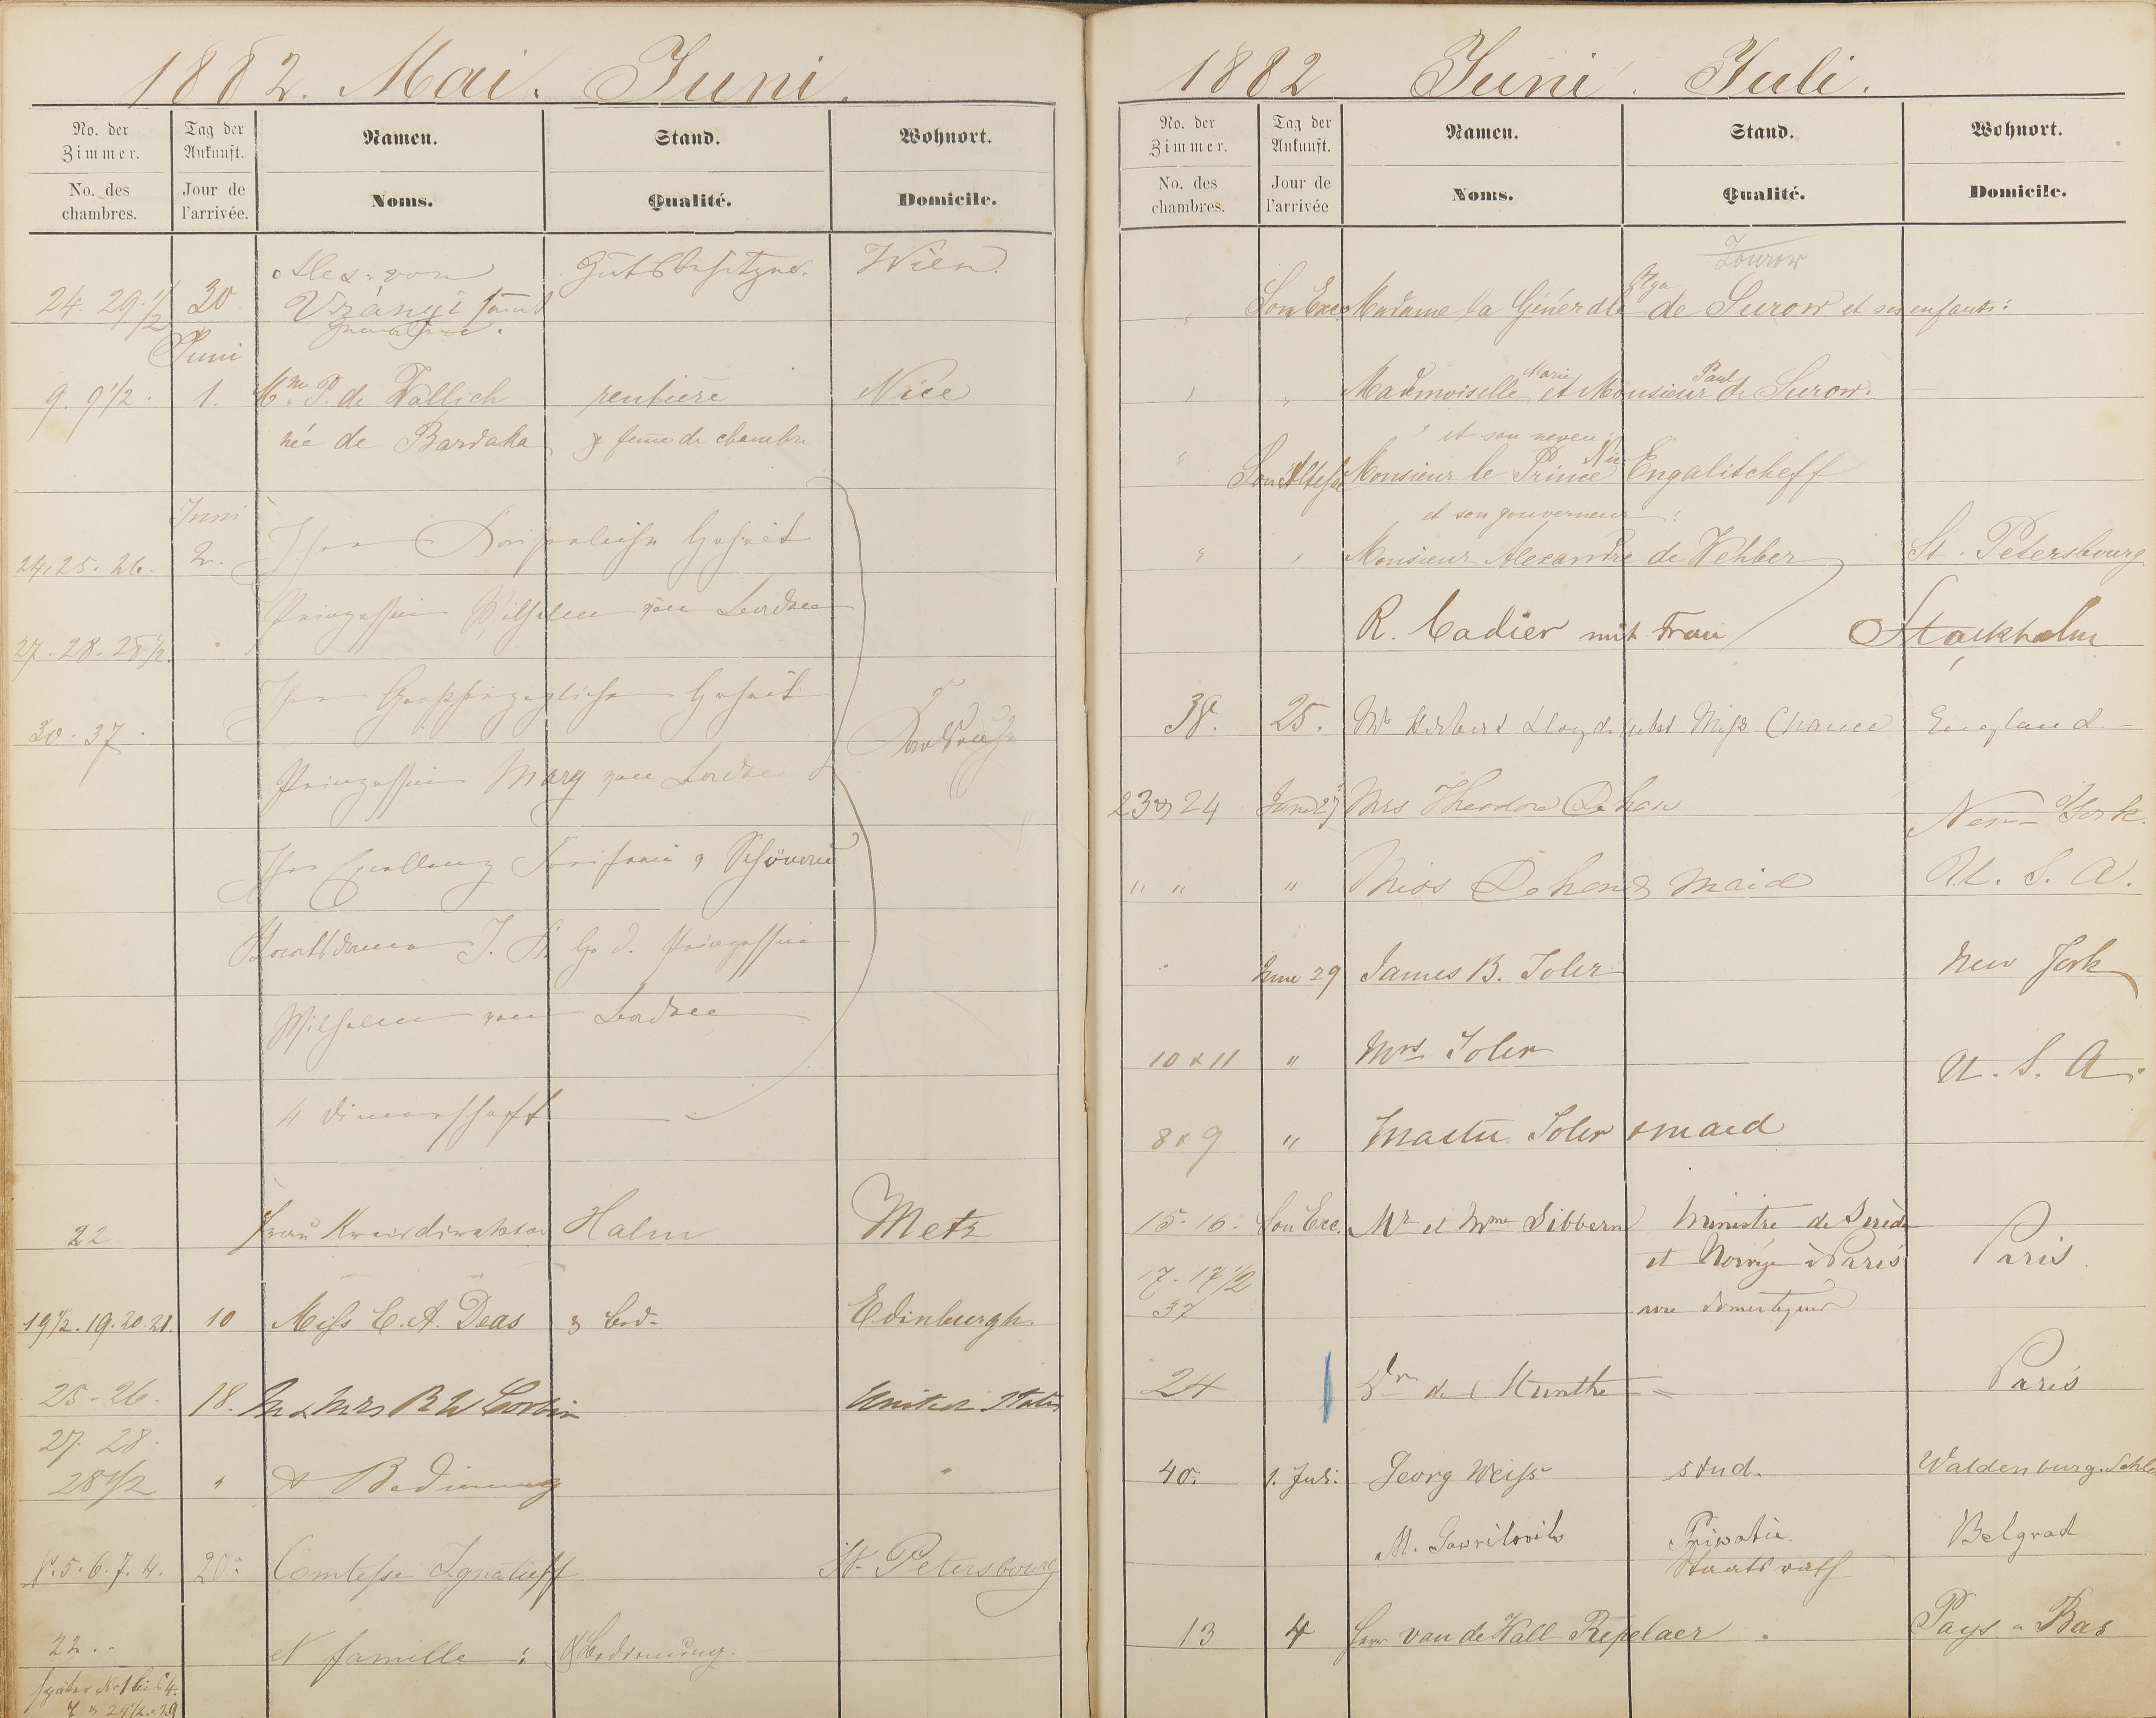 1882. Mai. Juni.
No. der Zimmer. Tag der Ankunft. Namen. Stand. Wohnort.
No. des chambres. Jour de l'arrivée. Noms. Qualité. Domicile.
Alex. von Gutsbesitzer. Wien.
24. 29 1/2 30 Vrányi samt
Gemahlin.
Juni
9. 9 1/2. 1. Mme P. de Wallich rentière Nice
née de Bardaka & femme de chambre
Juni
24. 25. 26. 2. Ihre Kaiserliche Hoheit
Prinzessin Wilhelm von Baden
27. 28. 28 1/2.
Ihre Großherzogliche Hoheit
30. 37. Karlsruhe
Prinzessin Mary von Baden
Ihre Excellenz Freifrau v Schönau
Hofdame I. K. H. d. Prinzessin
Wilhelm von Baden
4 Dienerschaft
22 Frau Kreisdirektor Halm Metz
19 1/2. 19. 20. 21. 10 Miss C. A. Deas & Bed. Edinburgh.
25 - 26. 18. M & Mrs R W Corbin United States
27. 28.
28 1/2 " & Bedienung "
5. 6. 7. 4. 20. Comtesse Ignatieff St. Petersbourg
22. et famille : & Bedienung.
später No 1 bis 4.
7 & 29 1/2. 29
1882 Juni. Juli.
No. der Zimmer. Tag der Ankunft. Namen. Stand. Wohnort.
No. des chambres. Jour de l'arrivée Noms. Qualité. Domicile.
Zourow
Olga
" Son Exc. Madame la Générale de Surow et ses enfants:
Marie Paul
" " Mademoiselle, et Monsieur de Surow.
" et son neveu:
" Son Altesse Monsieur le Prince Nic. Engalitcheff
et son gouverneur :
" " Monsieur Alexandre de Wehber St. Petersbourg
R. Cadier mit Frau Stockholm
38. 25. Mr Herbert Lloyd. nebst Miss Chance England
23 & 24 June 27 Mrs Theodore Dehon New-York.
" " " Miss Dehon & maid U. S. A.
June 29 James B. Toler New York
10 & 11 " Mrs Toler U. S. A.
8 & 9 " Master Toler & maid
15. 16. Son Exc. Mr et Mme Sibbern Ministre de Suède
17. 17 1/2 et Norvège à Paris Paris.
37 avec domestiques
24 Dr de Munthe Paris
40. 1. Juli. Georg Weiss stud. Waldenburg. Schles
M. Gavrilovits Privatier. Belgrad
Staatsrath
13 4 Herr van de Wall Repelaer. Pays - Bas